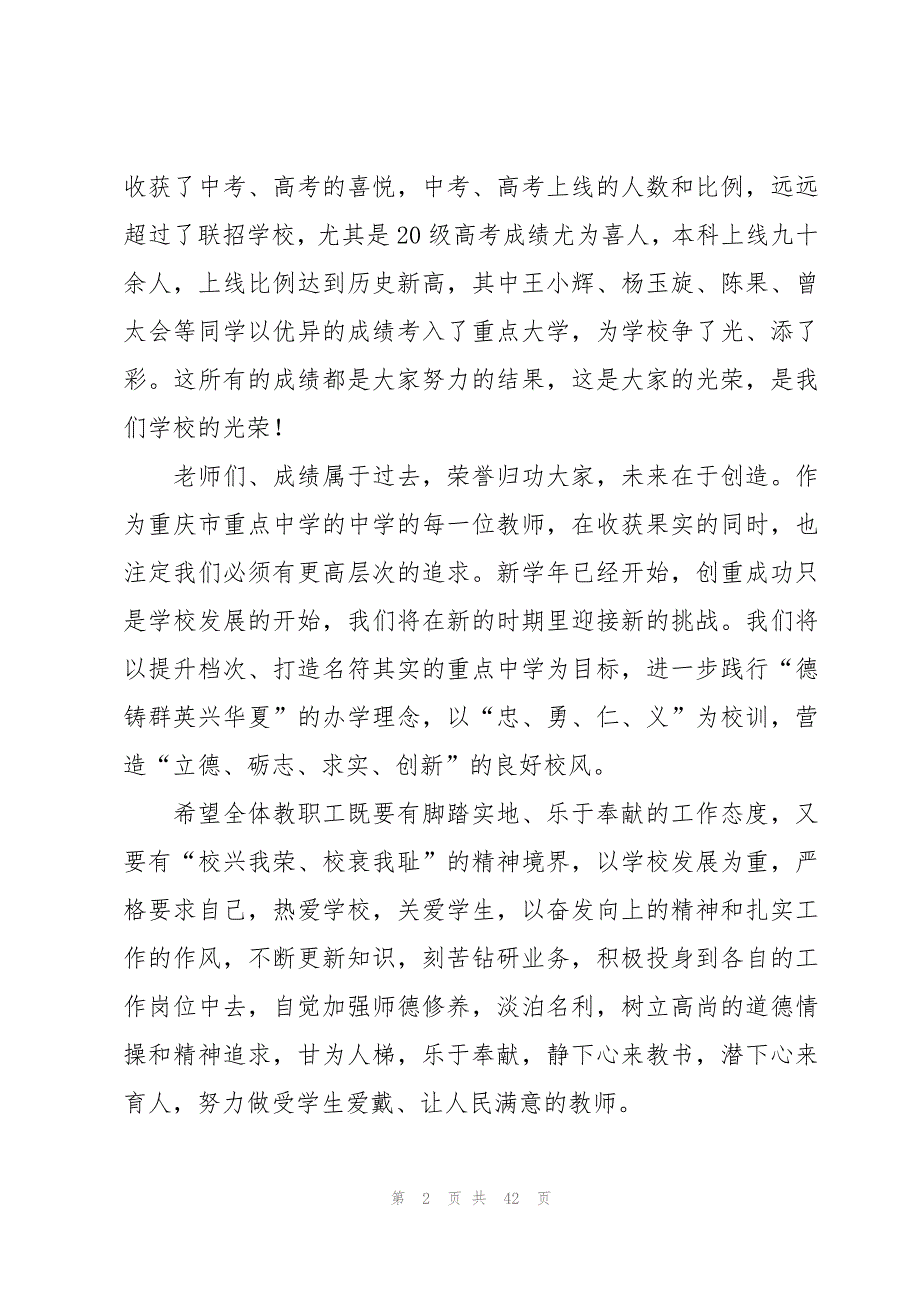 收获了中考、高考的喜悦，中考、高考上线的人数和比例，远远
超过了联招学校，尤其是 20 级高考成绩尤为喜人，本科上线九十
余人，上线比例达到历史新高，其中王小辉、杨玉旋、陈果、曾
太会等同学以优异的成绩考入了重点大学，为学校争了光、添了
彩。这所有的成绩都是大家努力的结果，这是大家的光荣，是我
们学校的光荣！
老师们、成绩属于过去，荣誉归功大家，未来在于创造。作
为重庆市重点中学的中学的每一位教师，在收获果实的同时，也
注定我们必须有更高层次的追求。新学年已经开始，创重成功只
是学校发展的开始，我们将在新的时期里迎接新的挑战。我们将
以提升档次、打造名符其实的重点中学为目标，进一步践行“德
铸群英兴华夏”的办学理念，以“忠、勇、仁、义”为校训，营
造“立德、砺志、求实、创新”的良好校风。
希望全体教职工既要有脚踏实地、乐于奉献的工作态度，又
要有“校兴我荣、校衰我耻”的精神境界，以学校发展为重，严
格要求自己，热爱学校，关爱学生，以奋发向上的精神和扎实工
作的作风，不断更新知识，刻苦钻研业务，积极投身到各自的工
作岗位中去，自觉加强师德修养，淡泊名利，树立高尚的道德情
操和精神追求，甘为人梯，乐于奉献，静下心来教书，潜下心来
育人，努力做受学生爱戴、让人民满意的教师。
第 2 页 共 42 页